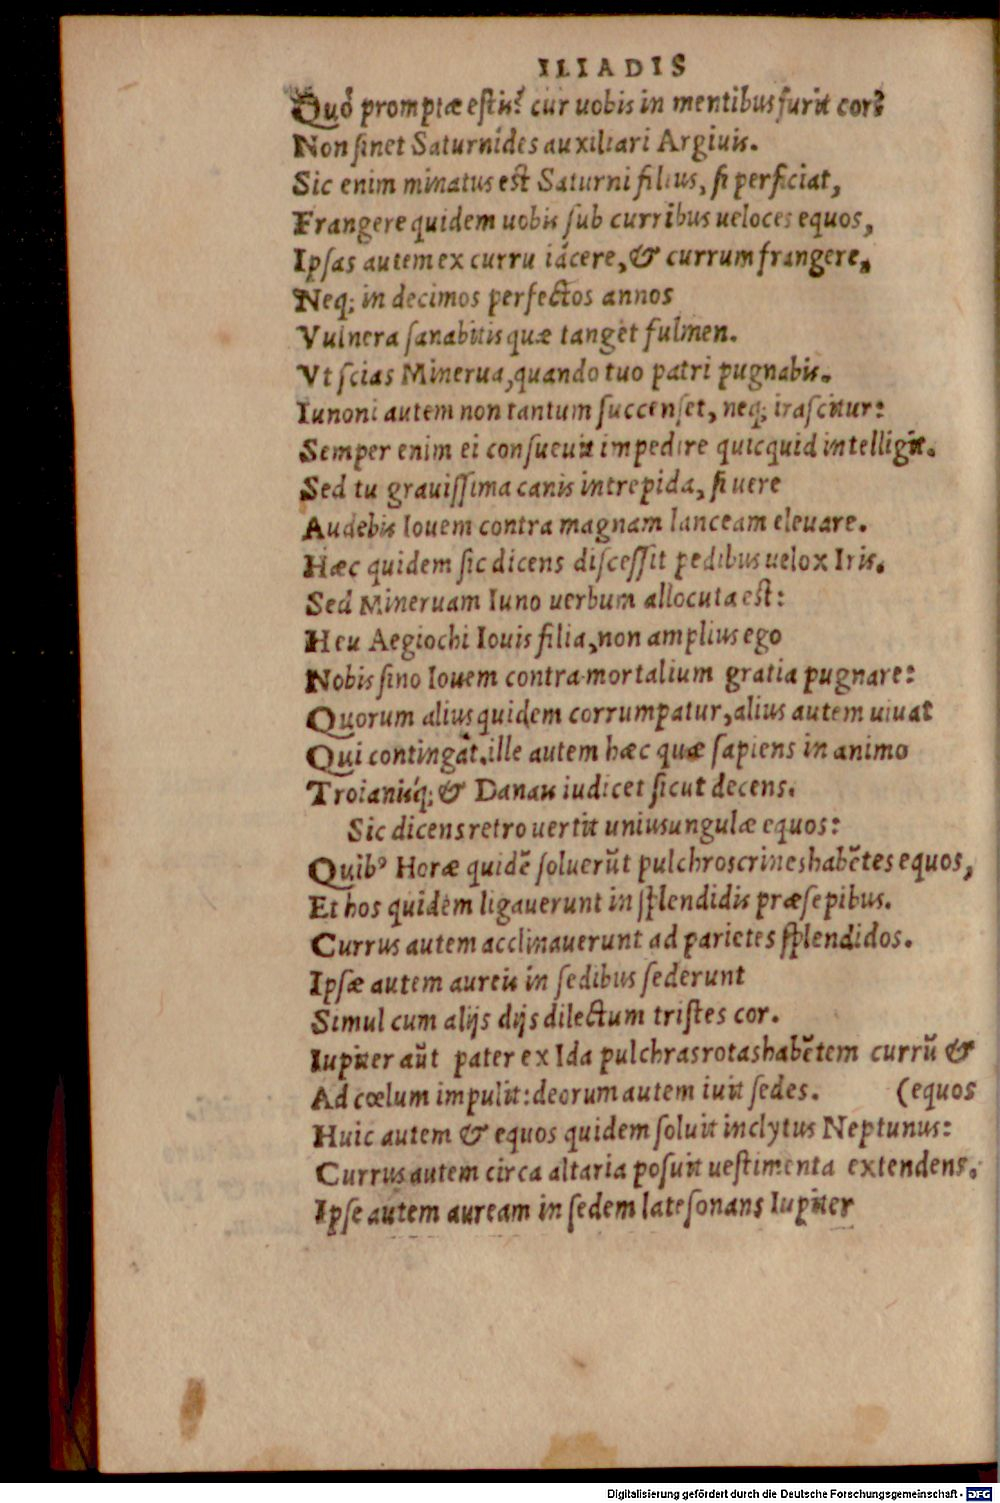 ILIADIS
Quò promptæ estis? cur uobis in mentibus furit cor?
Non sinet Saturnides auxiliari Argiuis.
Sic enim minatus est Saturni filius, si perficiat,
Frangere quidem uobis sub curribus ueloces equos,
Ipsas autem ex curru iácere, & currum frangere,
Neq; in decimos perfectos annos
Vulnera sanabitis quæ tanget fulmen.
Vt scias Minerua, quando tuo patri pugnabis.
Iunoni autem non tantum succenset, neq; irascitur:
Semper enim ei consueuit impedire quicquid intelligit.
Sed tu grauissima canis intrepida, si uere
Audebis Iouem contra magnam lanceam eleuare.
Hæc quidem sic dicens discessit pedibus uelox Iris.
Sed Mineruam Iuno uerbum allocuta est:
Heu Aegiochi Iouis filia, non amplius ego
Nobis sino Iouem contra mortalium gratia pugnare:
Quorum alius quidem corrumpatur, alius autem uiuat
Qui contingat. ille autem hæc quæ sapiens in animo
Troianisq́; & Danais iudicet sicut decens.
Sic dicens retro uertit unius ungulæ equos:
Quibꝰ Horæ quidē soluerūt pulchros crines habētes equos,
Et hos quidem ligauerunt in splendidis præsepibus.
Currus autem acclinauerunt ad parietes splendidos.
Ipsæ autem aureis in sedibus sederunt
Simul cum alijs dijs dilectum tristes cor.
Iupiter aūt pater ex Ida pulchras rotas habētem currū &
Ad cœlum impulit: deorum autem iuit sedes. (equos
Huic autem & equos quidem soluit inclytus Neptunus:
Currus autem circa altaria posuit uestimenta extendens.
Ipse autem auream in sedem late sonans Iupiter
Digitalisierung gefördert durch die Deutsche Forschungsgemeinschaft - DFG